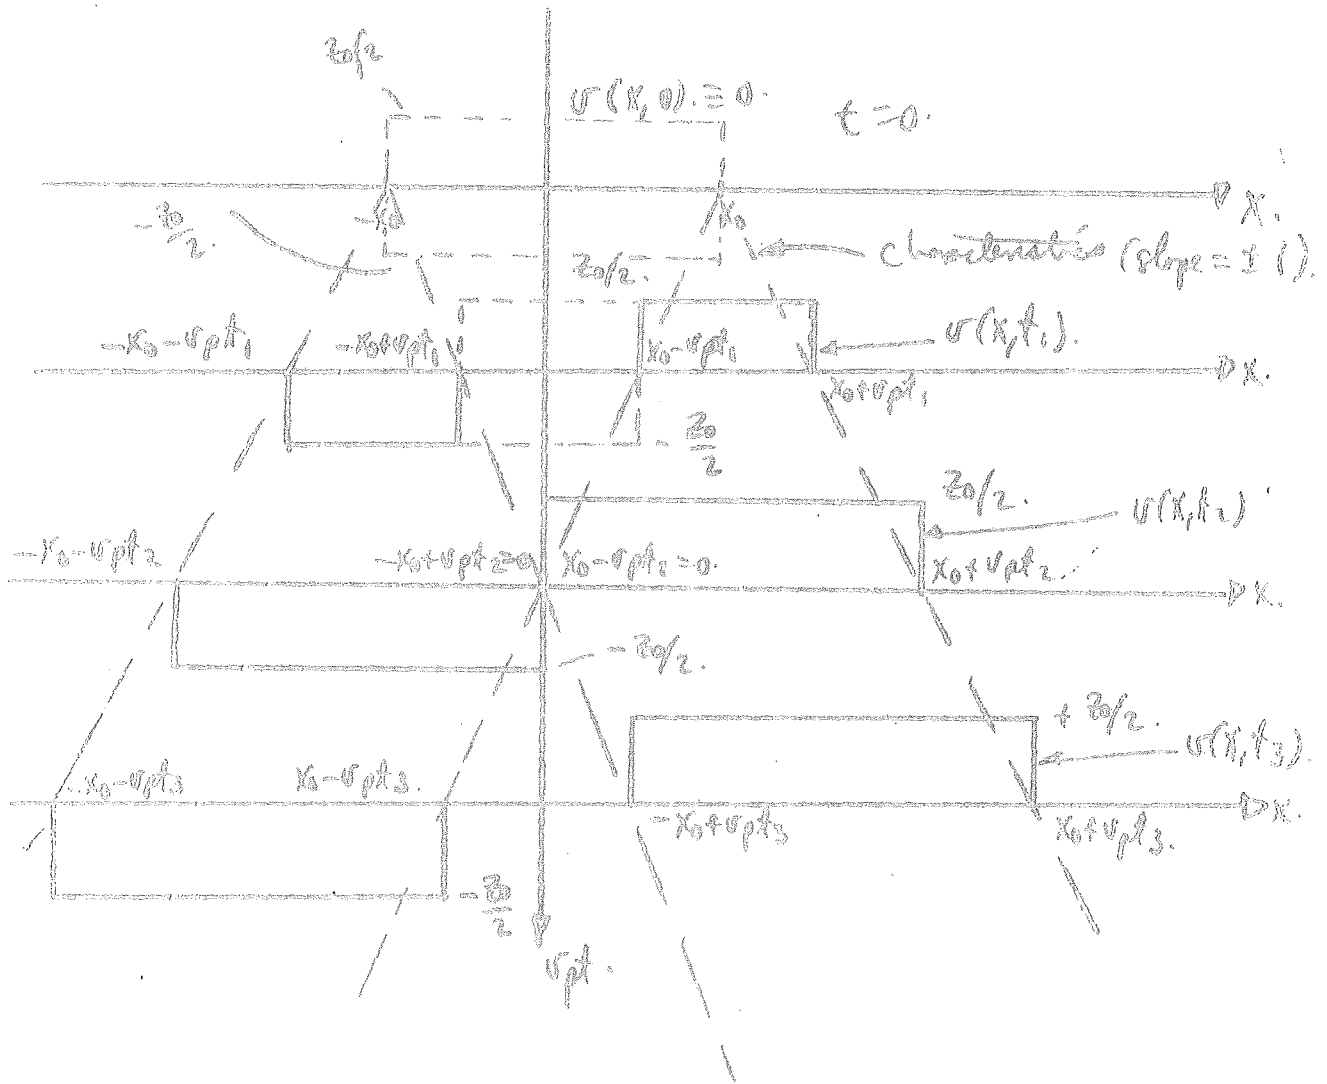 z₀/2
v(x,0) ≡ 0.
t=0.
x.
-x₀
x₀
-z₀/2.
z₀/2.
(slope = ± 1).
-x₀-vₚt₁
-x₀+vₚt₁
x₀-vₚt₁
v(x,t₁).
x.
x₀+vₚt₁
-z₀/2
z₀/2.
v(x,t₂)
-x₀-vₚt₂
-x₀+vₚt₂=0
x₀-vₚt₂=0.
x₀+vₚt₂
x.
-z₀/2.
+z₀/2.
v(x,t₃).
-x₀-vₚt₃
x₀-vₚt₃.
x.
-x₀+vₚt₃
x₀+vₚt₃.
-z₀/2
vₚt.